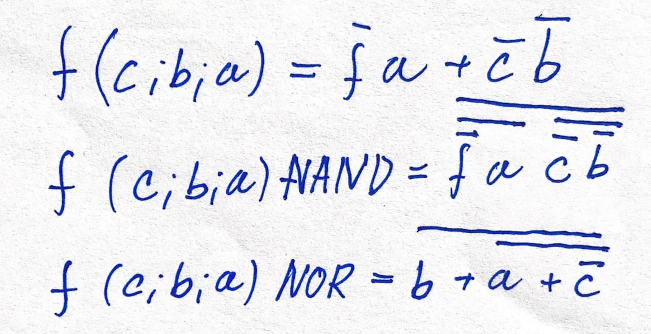 f (c;b;a) = f̄ a + c̄ b̄
f (c;b;a) NAND = f̄ a c̄ b̄
f (c;b;a) NOR = b + a + c̄